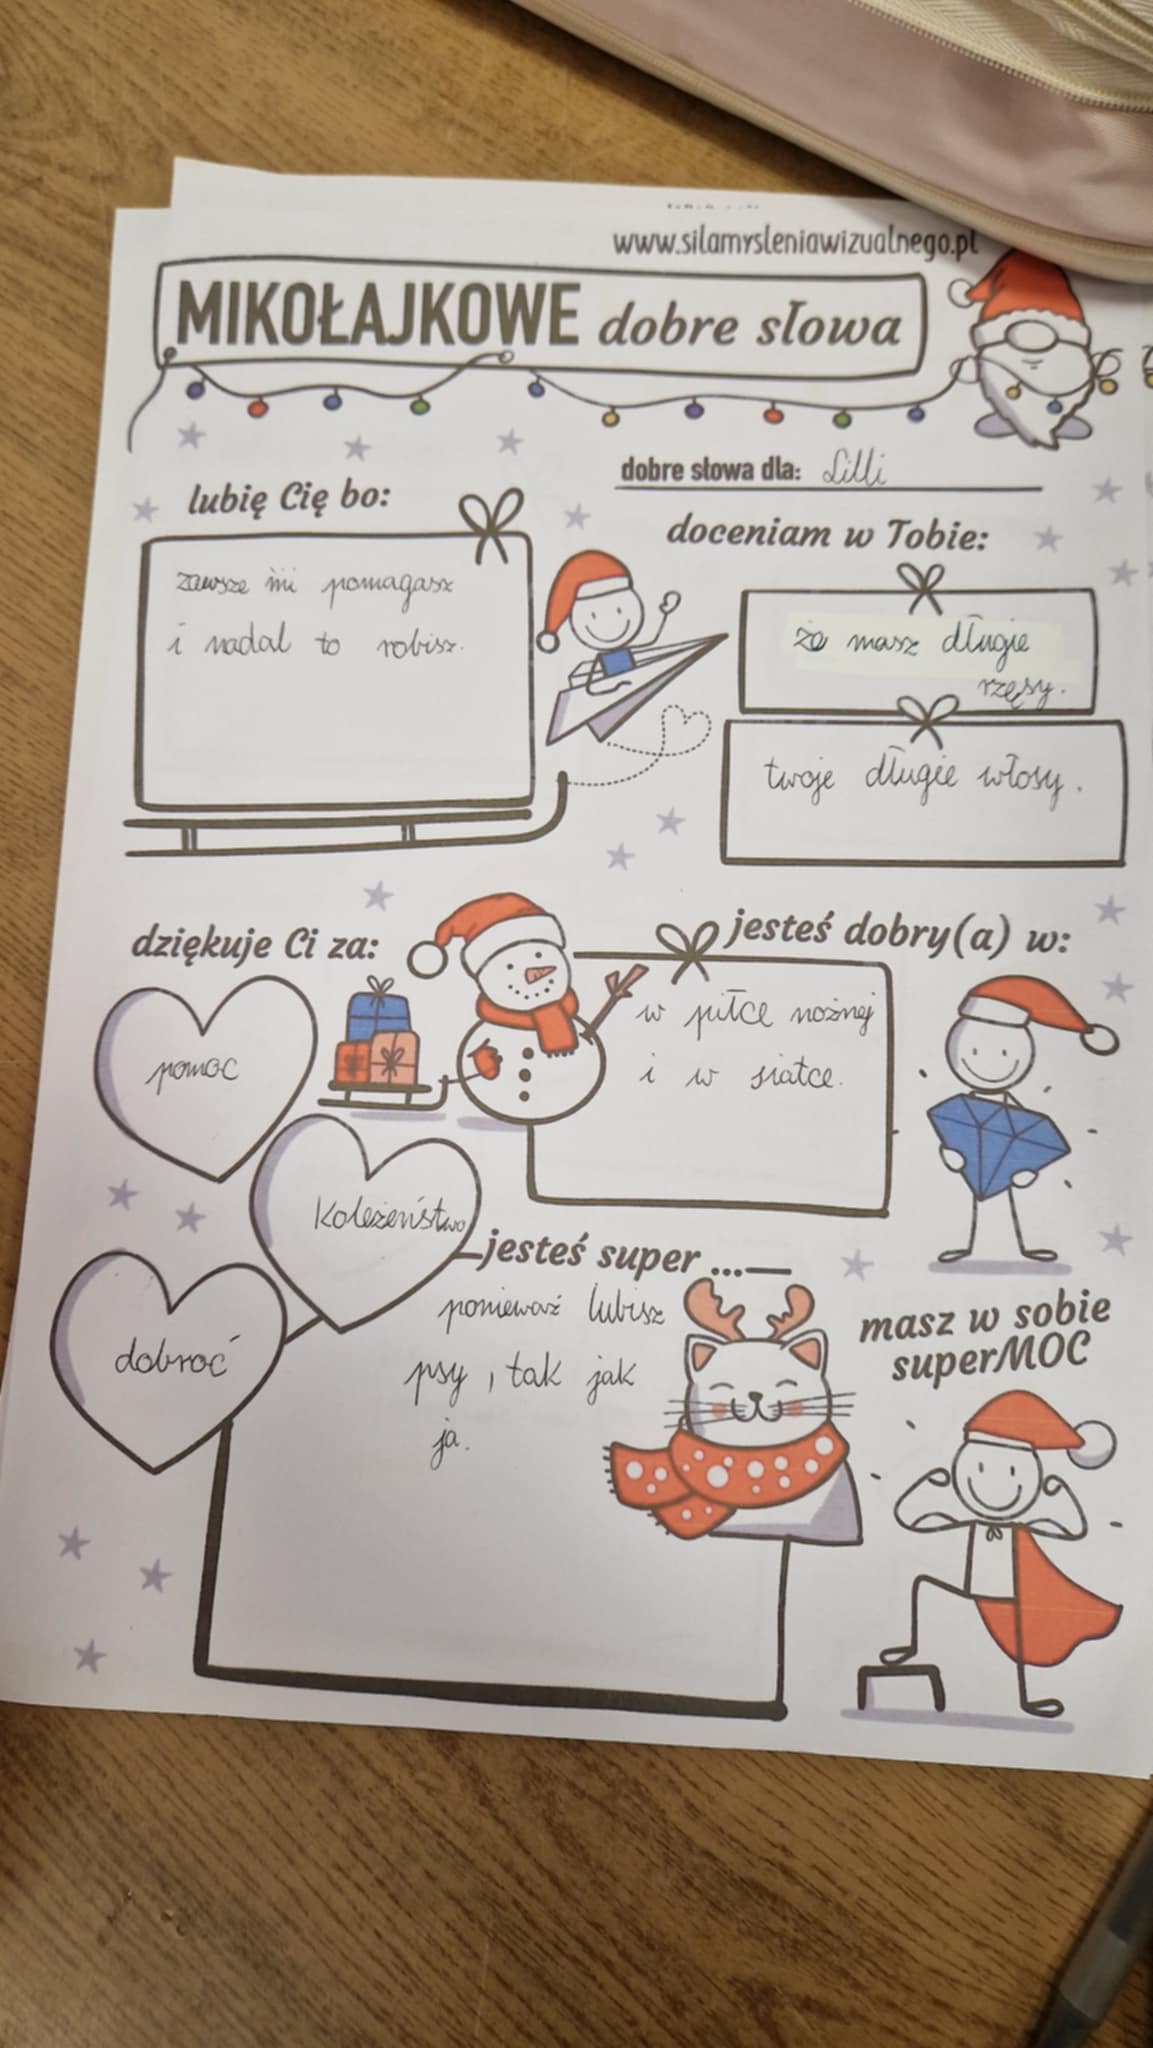 www.silamysleniawizualnego.pl
MIKOŁAJKOWE dobre słowa
dobre słowa dla: Lilli
lubię Cię bo:
zawsze mi pomagasz
i nadal to robisz.
doceniam w Tobie:
że masz długie
rzęsy.
twoje długie włosy.
dziękuje Ci za:
pomoc
koleżeństwo
dobroć
jesteś dobry(a) w:
w piłce nożnej
i w siatce.
jesteś super ...
ponieważ lubisz
psy, tak jak
ja.
masz w sobie
superMOC